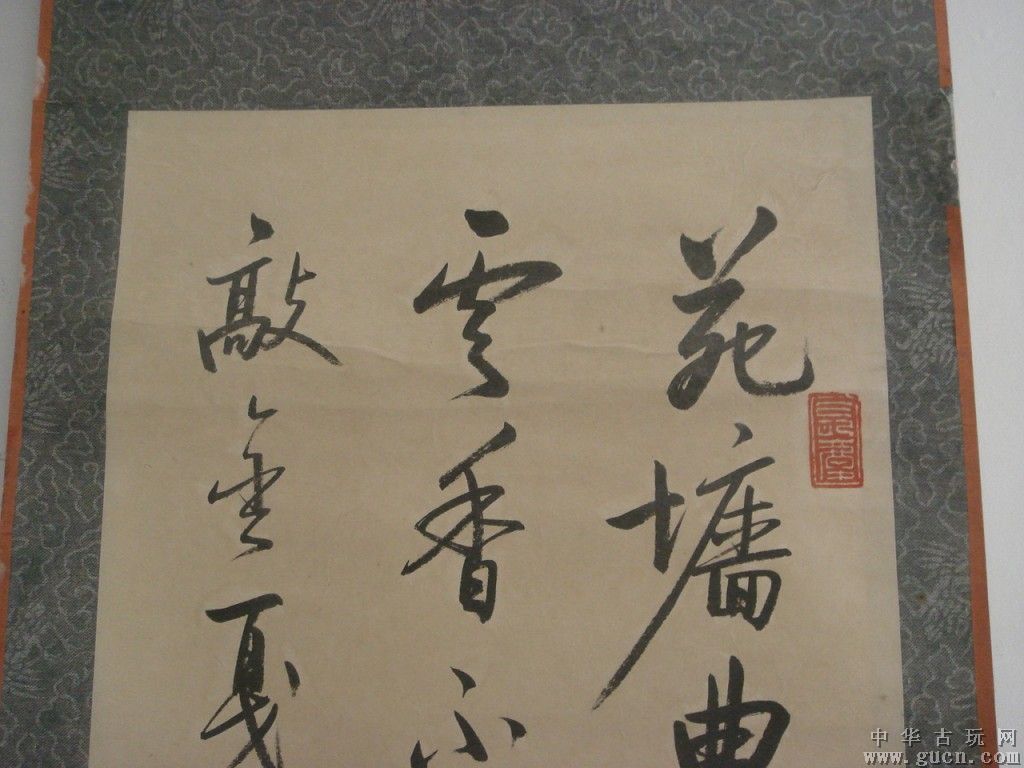 苑墻曲
雲香不
敲金戛
中华古玩网
www.gucn.com